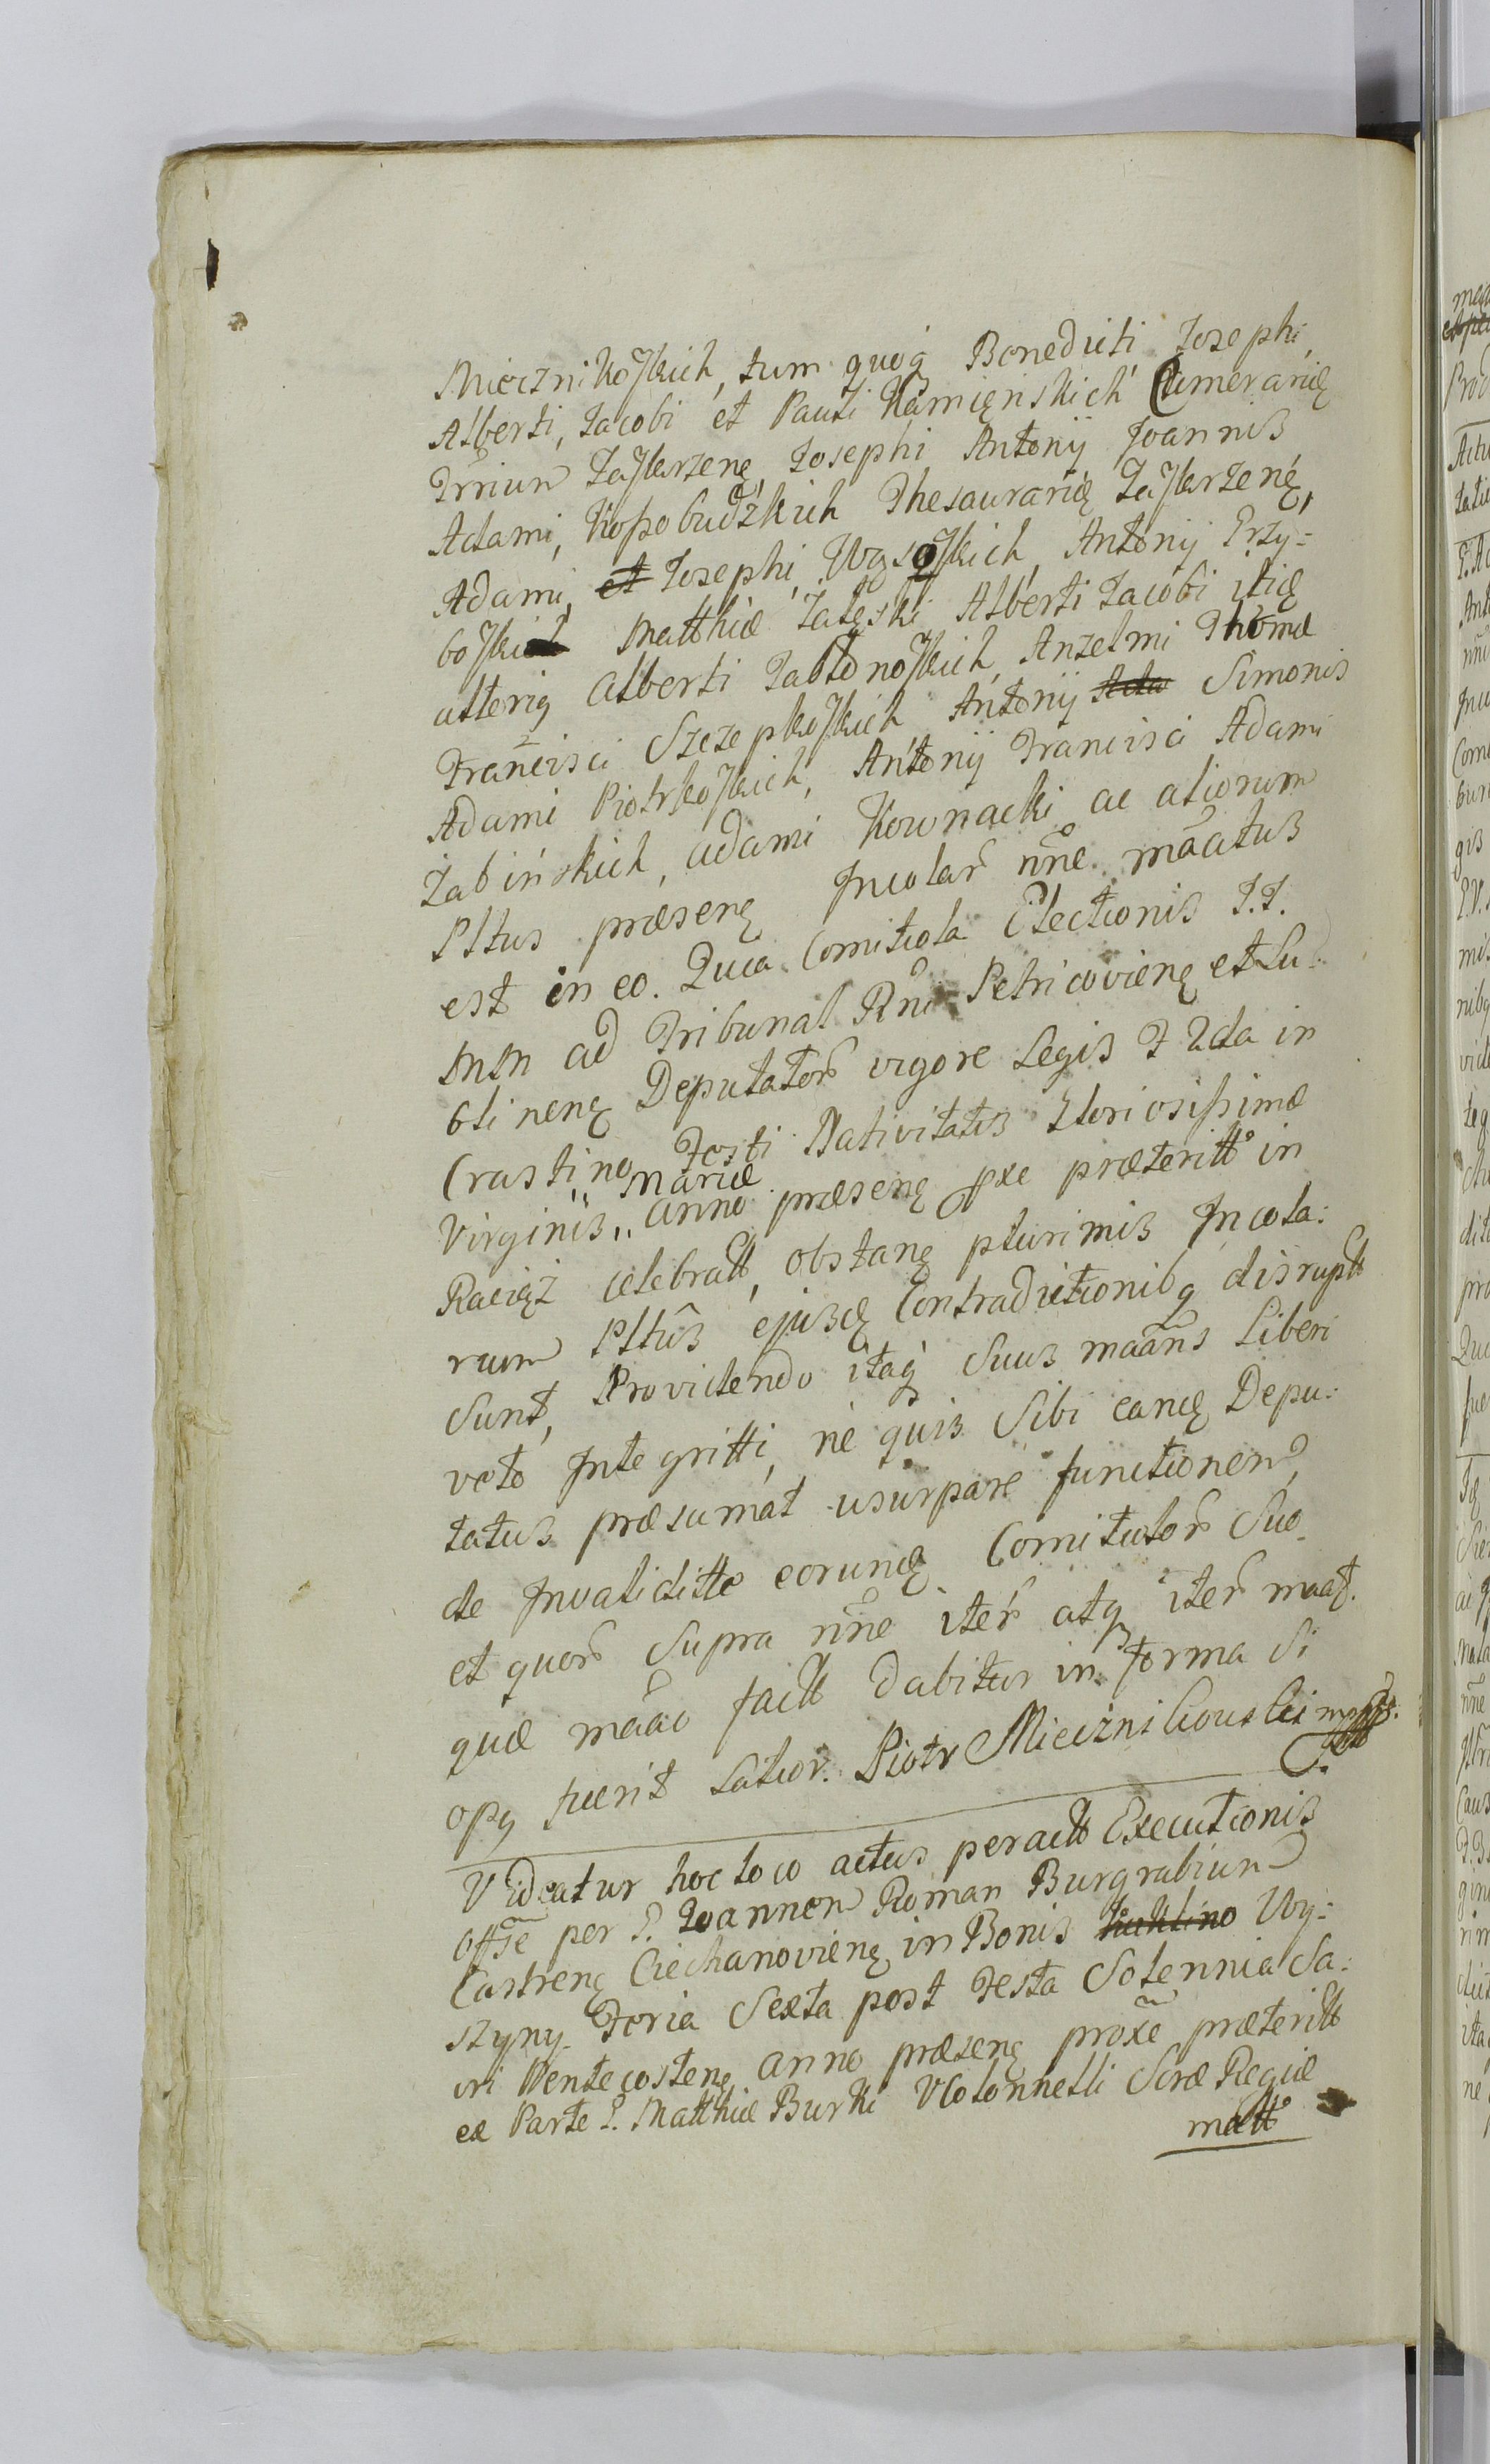 Mieiznikoskich, tum quoq Benedicti Josephi,
Alberti, Jacobi et Pauli Kamięnskich Camerarię
Trrium Zaskrzenę, Josephi Antonij Joannis
Adami, Kopobudzkich Thesaurarię Zaskrzenę,
Adami, et Josephi, Wysoskich, Antonij Przy=
boski Matthiæ Zalęski Alberti Jacobi itię
alteriq Alberti Jabłonoskich, Anzelmi Thomæ
Francisci Szczepkoskich Antonij Ada Simonis
Adami Piotrkoskich, Antonij Francisci Adami
Żabińskich, Adami Kownacki ac aliorum
Pltus præsenę Incolar nne maatus
est in eo. Quia Comitiola Electionis I.I.
MM ad Tribunal Rni Petricovienę et Lu:
blinenę Deputator vigore Legis F 2da in
Crastino Festi Nativitatis Gloriosissimæ
Virginis,, Mariæ Anno præsenę pxe præteritto in
Raciąż celebratt, obstanę plurimis Incola:
rum Pltus ejusdę Contradictionibq disruptt
Sunt, Providendo itaq suus maans Liberi
veto Integritti, ne quis Sibi eandę Depu:
tatus præsumat usurpare functionem,
de Invaliditte eorundę Comitiolor Suo
et quor supra nne iter atq iter maat.
quæ maao factt dabitur in forma Si
opq fuerit Latior. Piotr Mieiznikouski mpp
Videatur hoc loco actus peractt Executionis
Offse per P. Joannem Roman Burgrabium
Castrenę Ciechanovienę in Bonis Wy=
szyny Feria Sexta post Festa Solennia Sa:
cri Pentecostenę Anno præsenę proxe præteritt
ex Parte P. Matthiæ Burski VColonnelli Scræ Regiæ
matto